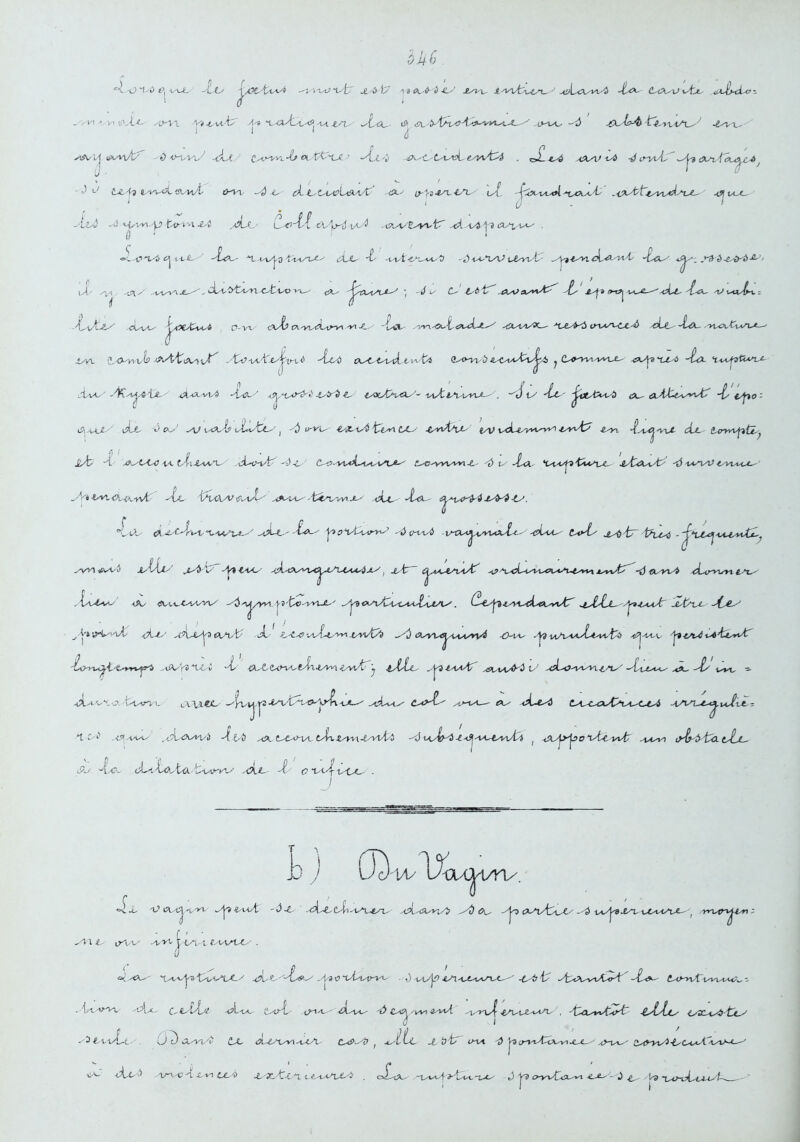 346
Lorsque le foetus mort est passé en entier dans la cavité abdo=
mine on peut pratiquer la gastrotomie ou s'abstenir en
 combattant les accidents. Les avis sont partagés,
cependant on se décidant à opérer il faudrait attendre que
les symptômes de Collapsus aient disparu.
Lorsque la rupture de l'utérus survient pendant la grossesse,
il y a une distinction à faire; si c'est avant l'époque de la viabi=
lité du foetus on abandonne la malade aux ressources de la nature
en combattant toutefois les accidents consécutifs, comme après la rupture
du Kyste dans la grossesse extra-utérine. Si le foetus a atteint l'épo=
que de sa viabilité, son existence entre évidemment en ligne de compte,
et l'accoucheur doit se conduire comme si la rupture était survenue
pendant le travail au terme de la grossesse.
La déchirure de la portion sous-vaginale du col est très-fréquente,
mais elle est peu dangereuse, et guérit ordinairement sans donner
lieu à aucun symptôme particulier. Cependant elle peut être le
point de départ d'écoulements sanguins ou purulents qui persistent
longtemps après l'accouchement; elle peut aussi donner lieu à l'in=
duration avec hypertrophie du col ou à des cicatrices irréguliè=
res qui dans les accouchements subséquents, apportent un obstacle
à la dilatation de l'orifice.
b) Du Vagin.
Le vagin peut se déchirer dans sa partie supérieure, moyen=
ne ou inférieure.
La rupture de la portion supérieure est tantôt la continua=
tion de celle du col ou du segment inférieur, tantôt elle existe
seule. Dans ce dernier cas, elle est ou spontanée ou consécutive
à des violences extérieures. La rupture spontanée se produit